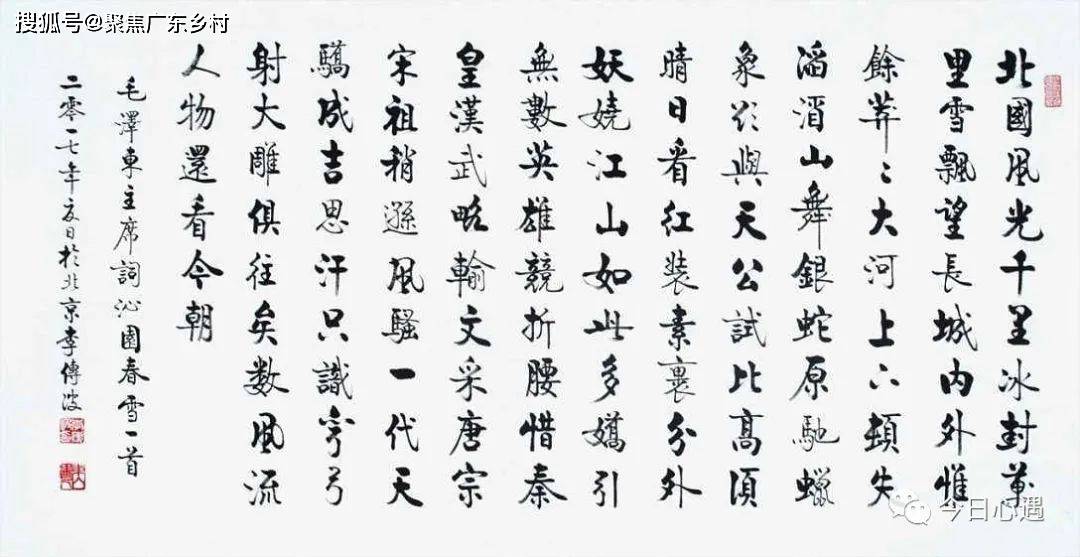 搜狐号@聚焦广东乡村
北國風光千里冰封萬
里雪飄望長城內外惟
餘莽〻大河上下頓失
滔滔山舞銀蛇原馳蠟
象欲與天公試比高須
晴日看紅裝素裹分外
妖嬈江山如此多嬌引
無數英雄競折腰惜秦
皇漢武略輸文采唐宗
宋祖稍遜風騷一代天
驕成吉思汗只識彎弓
射大雕俱往矣数風流
人物還看今朝
毛澤東主席詞沁園春雪一首
二零一七年夏日於北京李傳波
今日心遇